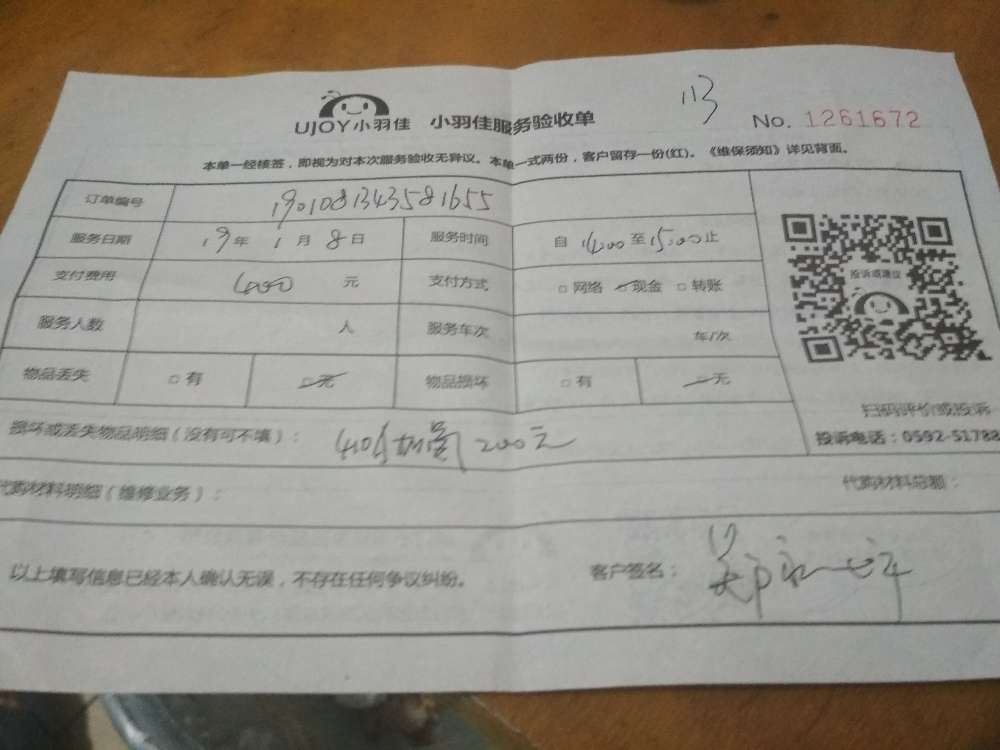 113
UJOY小羽佳 小羽佳服务验收单 No. 1261672
本单一经核签，即视为对本次服务验收无异议。本单一式两份，客户留存一份(红)。《维保须知》详见背面。
订单编号 1901081343581655
服务日期 19年1月8日 服务时间 自14:00至15:00止
支付费用 400元 支付方式 □网络 现金 □转账
投诉或建议
服务人数 人 服务车次 车/次
物品丢失 □有 □无 物品损坏 □有 无
扫码评价或投诉
损坏或丢失物品明细（没有可不填）： 200元
投诉电话：0592-51788
代购材料明细（维修业务）： 代购材料总额：
以上填写信息已经本人确认无误，不存在任何争议纠纷。 客户签名：